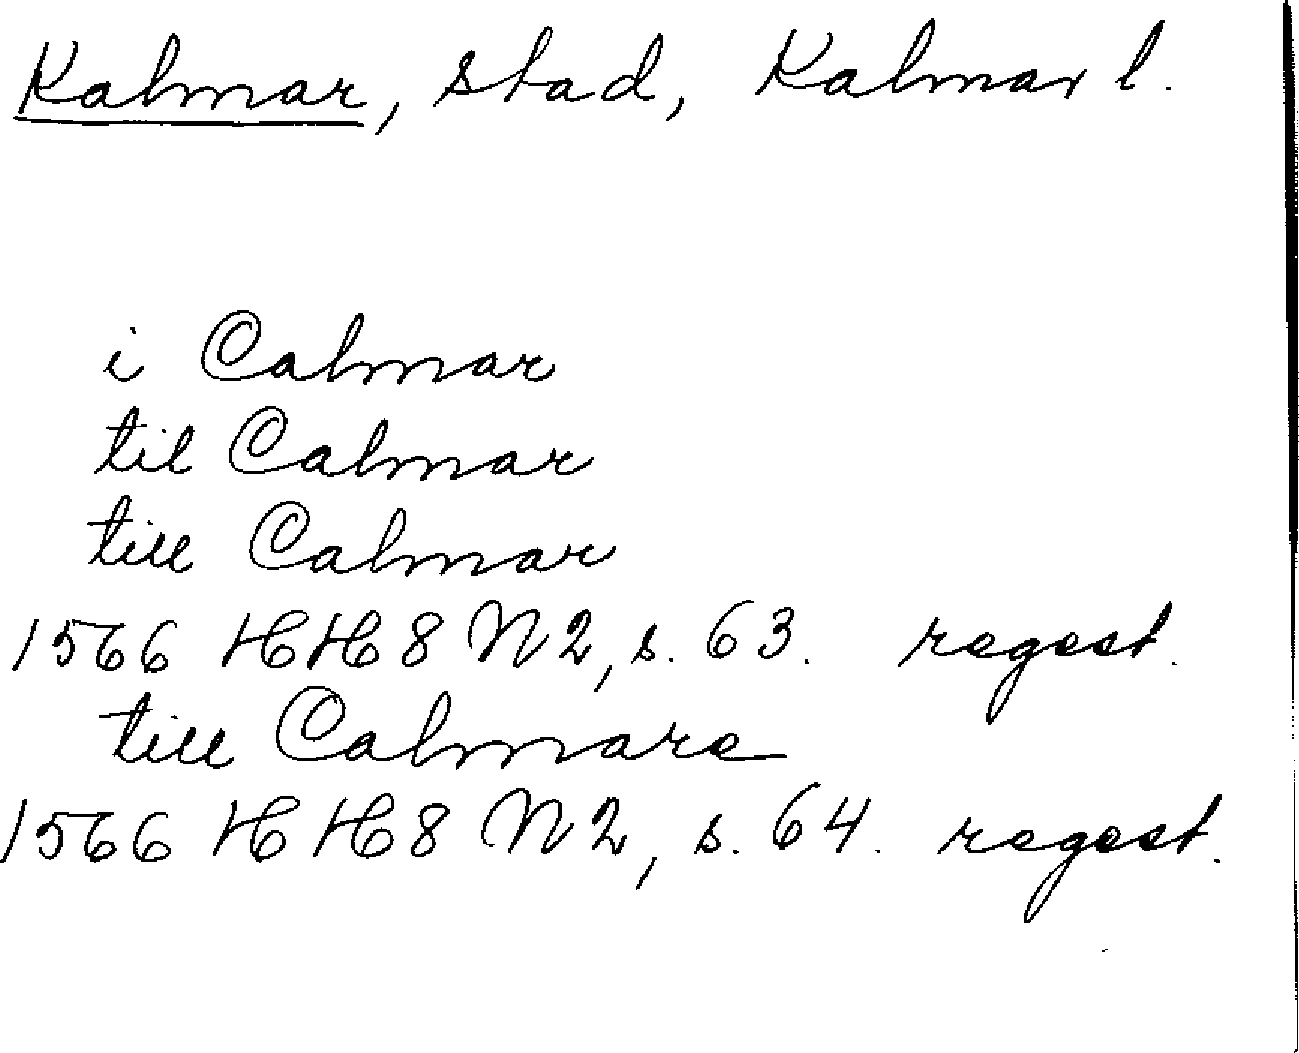 Kalmar, stad, Kalmar l.
i Calmar
til Calmar
till Calmar
1566 HH8 N2, s. 63. regest.
till Calmare
1566 HH8 N2, s. 64. regest.